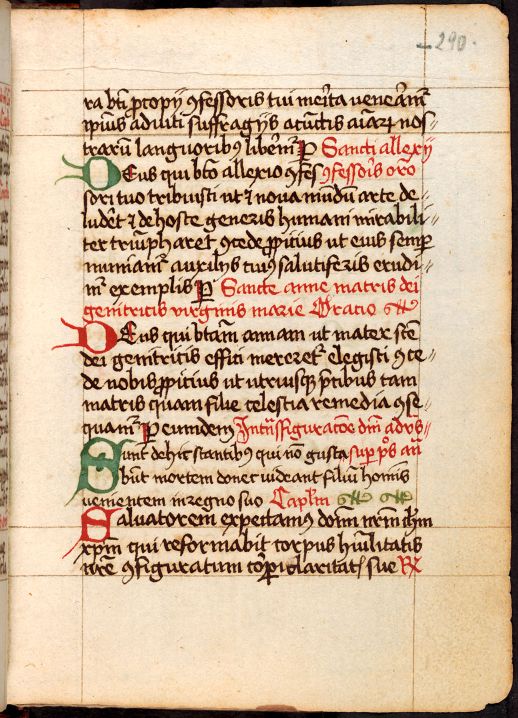 290.
ra bti pcopij ꝯfessoris tui merita venerãmᷣ
ipius adiuti suffragijs a cunctis aĩarꝝ nos⸗
trarũ languoribus liberemᷣ P Sancti allexij
Deus qui bto allexio ꝯfes ꝯfessoris oro
sori tuo tribuisti ut & noua mũdũ arte de⸗
luderet & de hoste generis humani mirabili⸗
ter triũpharet ꝯcede ꝓpitius ut eius semper
muniamᷣ auxilijs cuius salutiferis erudi⸗
mᷣ exemplis P Sancte anne matris dei
genitricis virginis marie Oratio
Deus qui btam annam ut mater scte
dei genitricis effici mereretᷣ elegisti ꝯce⸗
de nobis ꝓpitius ut utriusqꝫ p̃cibus tam
matris quam filie celestia remedia ꝯse⸗
quamᷣ P eundem In trãsfiguracõe dni ad vs⸗
Sunt de hic stantibus qui nõ gusta sup põs añ
bũt mortem donec videant filiũ homis
venientem in regno suo Caplm
Saluatorem expectamus dom̃ nrm ihm
xpm qui reformabit corpus hũilitatis
nre ꝯfiguratum corpi claritatis sue Rx